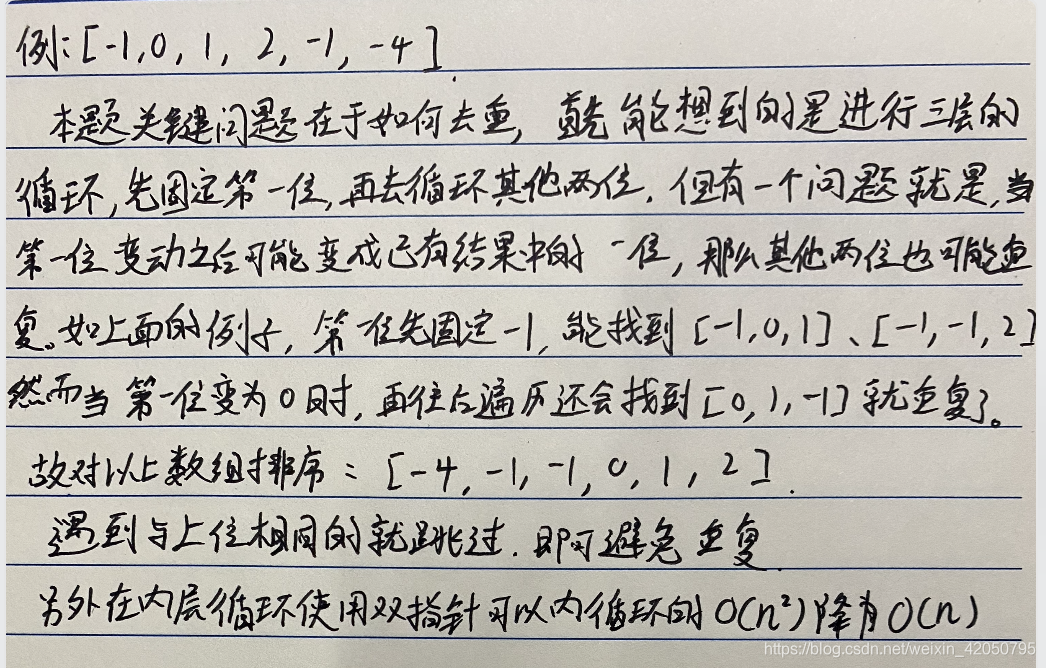 例:[-1,0,1,2,-1,-4].
本题关键问题在于如何去重,首先能想到的是进行三层的
循环,先固定第一位,再去循环其他两位.但有一个问题就是,当
第一位变动之后可能变成已有结果中的一位,那么其他两位也可能重
复。如上面的例子,第一位先固定-1,能找到[-1,0,1]、[-1,-1,2]
然而当第一位变为0时,再往后遍历还会找到[0,1,-1]就重复了。
故对以上数组排序:[-4,-1,-1,0,1,2].
遇到与上位相同的就跳过.即可避免重复.
另外在内层循环使用双指针可以内循环的O(n²)降为O(n)
https://blog.csdn.net/weixin_42050795